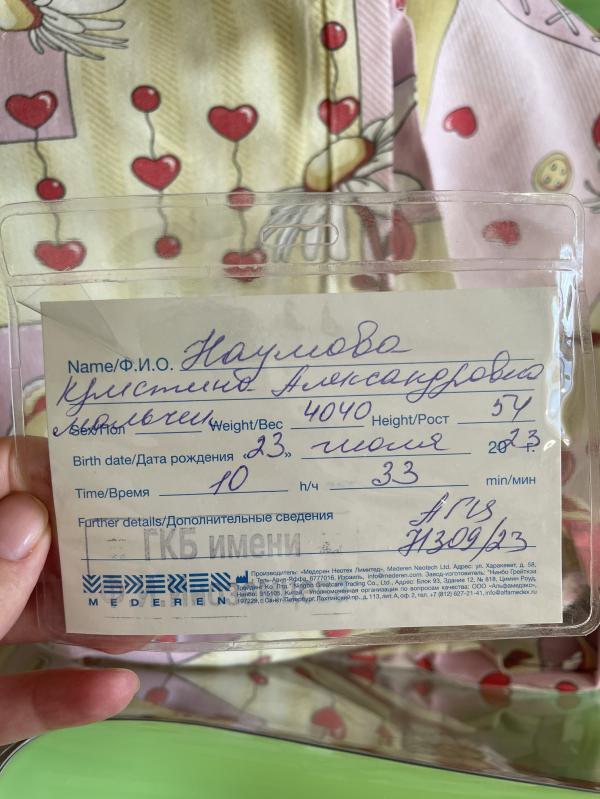 Name/Ф.И.О. Наумова
Кристина Александровна
Sex/Пол мальчик Weight/Вес 4040 Height/Рост 54
Birth date/Дата рождения „23„ июля 2023 г.
Time/Время 10 h/ч 33 min/мин
Further details/Дополнительные сведения
309/23
ГКБ имени
MEDEREN
Производитель: «Медерен Неотех Лимитед», Mederen Neotech Ltd. Адрес: ул. Харакевет, д. 58,
г. Тель-Авив-Яффа, 6777016, Израиль, info@mederen.com. Завод-изготовитель: "Нинбо Грейткэа
Трейдинг Ко, Лтд." Ningbo Greatcare Trading Co., Ltd., Адрес: Блок 93, Здание 12, № 818, Цимин Роуд,
Нинбо, 315105, Китай. Уполномоченная организация по вопросам качества: ООО «Альфамедэкс»,
197229, г. Санкт-Петербург, Лахтинский пр., д. 113, лит. А, оф. 2, тел. +7 (812) 627-21-41, info@alfamedex.ru